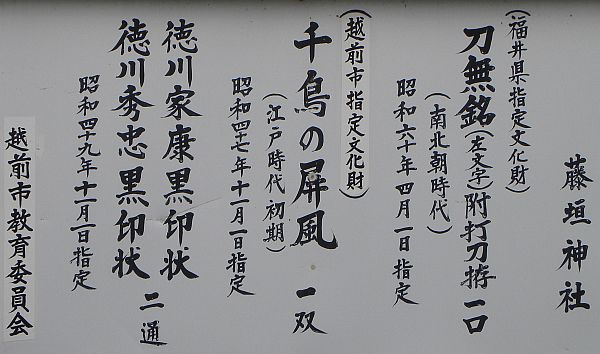 藤垣神社
(福井県指定文化財)
刀無銘(左文字)附打刀拵 一口
(南北朝時代)
昭和六十年四月一日指定
(越前市指定文化財)
千鳥の屏風 一双
(江戸時代初期)
昭和四十七年十一月一日指定
徳川家康黒印状
徳川秀忠黒印状 二通
昭和四十九年十一月一日指定
越前市教育委員会